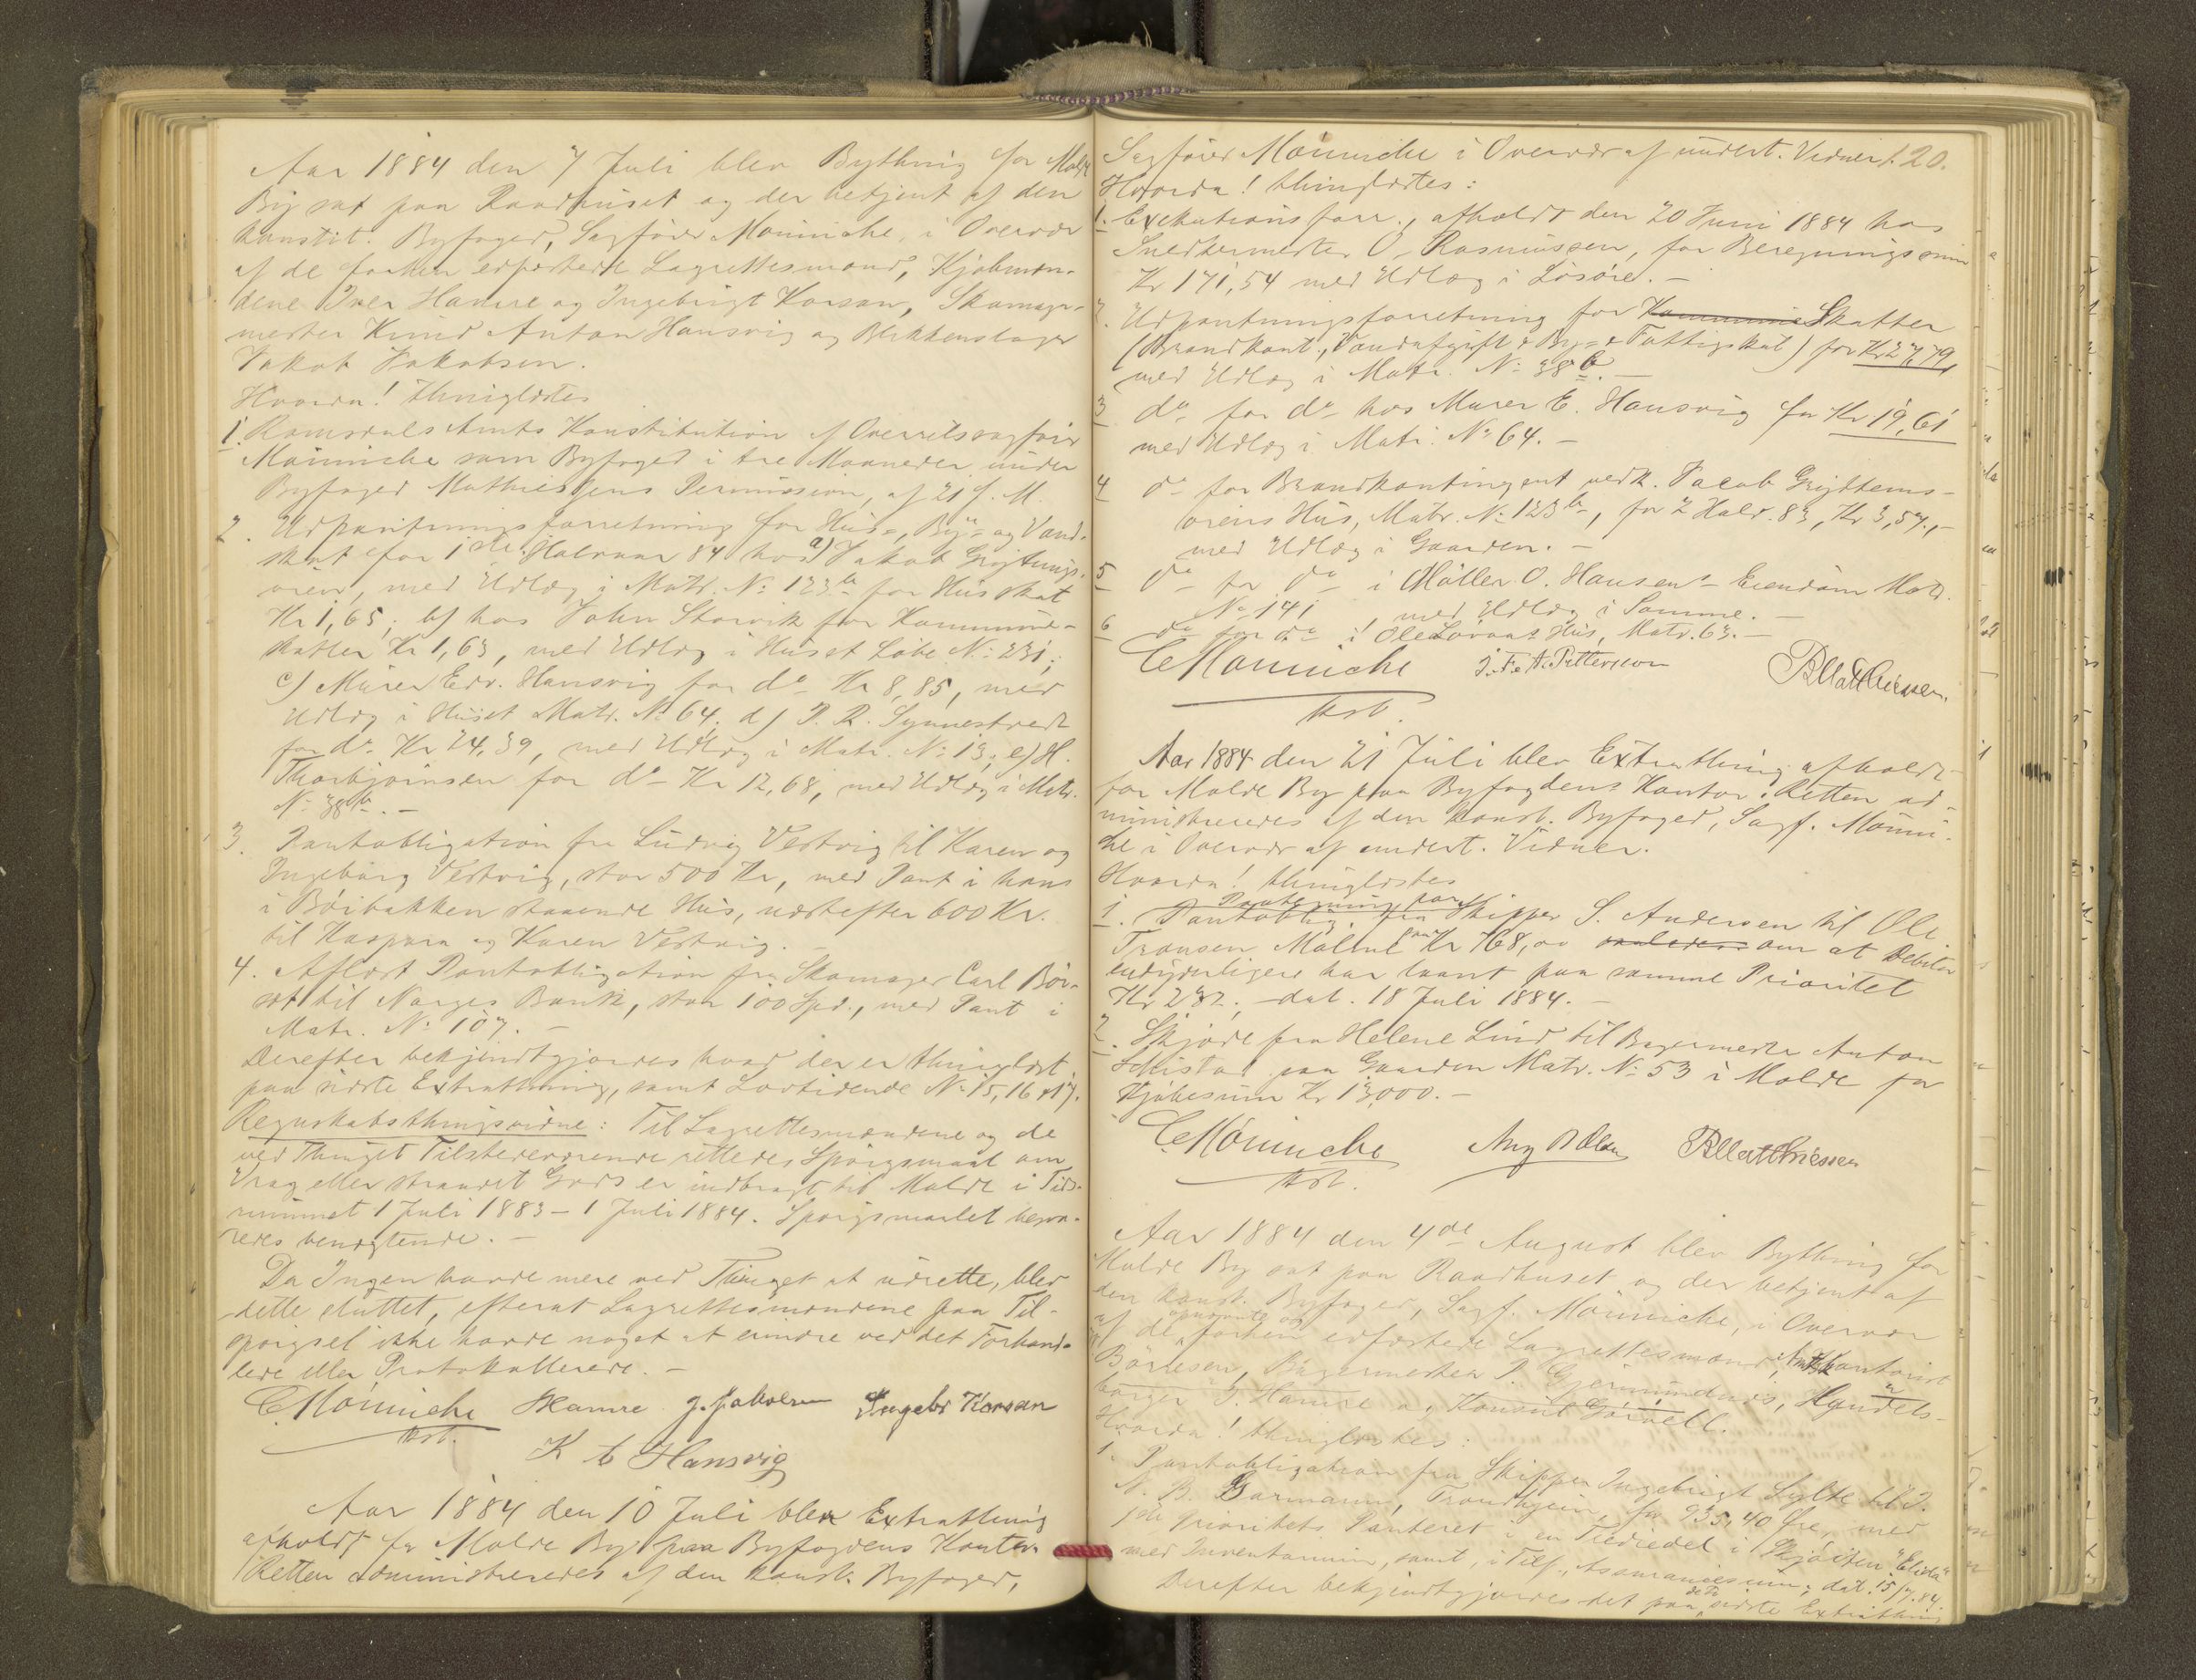 Aar 1884 den 7 Juli blev Bything for Molde
By sat paa Raadhuset og der betjent af den
konstit. Byfoged, Sagfører Mönniche, i Overvær
af de forhen edfæstede Lagrettesmænd, Kjøbmæn-
dene Iver Hamre og Ingebrigt Korsan, Skomager-
mester Knud Anton Hansvig og Blikkenslager
Jakob Jakobsen.
Hvorda! thinglæstes
1. Romsdals Amts Konstitution f Overretssagfører
Mönniche som Byfoged i tre Maaneder under
Byfoged Mathiessens Permission, af 21 f. M.
2. Udpantningsforretning for Hus-, By- og Vand-
skat for 1ste Halvaar 84 hos a) Jakob Grydtings-
øien, med Udlæg i Matr. No 123b for Husskat
Kr 1,65; b) hos John Storvik for Kommune-
skatter Kr 1,63, med Udlæg i Huset Løbe No 231;
c) Murer Edv. Hansvig for do Kr 8,85, med
Udlæg i Huset Matr. No 64. d) P. R. Synnestvedt
for do Kr 24,39, med Udlæg i Matr. No 13; e) H.
Thorbjørnsen for do Kr 12,68, med Udlæg i Matr.
No 38b. –
3. Pantobligation fra Ludvig Vestvig til Karen og
Ingeborg Vestvig, stor 500 Kr, med Pant i hans
i Böibakken staaende Hus, næstefter 600 Kr.
til Kaspara og Karen Vestvig. –
4. Aflæst Pantobligation fra Skomager Carl Bör-
set til Norges Bank, stor 100 Spd., med Pant i
Matr. No 107. –
Derefter bekjendtgjordes hvad der er thinglæst
paa sidste Extrathing, samt Lovtidende No 15, 16 & 17.
Regnskabsthingsvidne: Til Lagrettesmændene og de
ved Thinget Tilstedeværende rettedes Spörgsmaal om
Vrag eller strandet Gods er indbragt til Molde i Tids-
rummet 1 Juli 1883 – 1 Juli 1884. Spörgsmaalet besva-
redes benægtende. –
Da Ingen havde mere ved Thinget at udrette, blev
dette sluttet, efterat Lagrettesmændene paa Til-
spörgsel ikke havde noget at erindre ved det Forhand-
lede eller Protokollerede. –
C Mönniche Hamre J. Jakobsen Ingebr Korsan
kst.
K A Hansvig
Aar 1884 den 10 Juli blev Extrathing
afholdt for Molde By paa Byfogdens Kontor.
Retten administreredes af den konst. Byfoged,
Sagfører Mönniche i Overvær af undert. Vidner. 20.
Hvorda! thinglæstes:
1. Exekutionsforr., afholdt den 20 Juni 1884 hos
Snedkermester O. Rasmussen, for Beregningssum
Kr 171,54 med Udlæg i Lösöre. –
2. Udpantningsforretning for Kommune Skatter
(Brandkont., Vandafgift & By- & Fattigskat) for Kr 27,79,
med Udlæg i Matr. No 38b. –
3 do for do hos Murer E. Hansvig for Kr 19,61
med Udlæg i Matr. No 64. –
4 do for Brandkontingent vedk. Jacob Grydtems-
øiens Hus, Matr. No 123b, for 2 Halvd. 83, Kr 3,57, –
med Udlæg i Gaarden. –
5 do for do i Möller O. Hansens Eiendom Matr.
No 141, med Udlæg i Samme. –
6 do for do i Ole Lövaas Hus, Matr. 63. –
C Mönniche J. F. A. Petterson B Matthiessen.
kst.
Aar 1884 den 21 Juli blev Extrathing afholdt
for Molde By paa Byfogdens Kontor. Retten ad-
ministreredes af den konst. Byfoged, Sagf. Mönni-
che i Overvær af undert. Vidner.
Hvorda! thinglæstes
Pantobligation fra
1. Pantoblig. fra Skipper S. Andersen til Ole
Transen Malme paa Kr 768,00 om at Debitor
endyderligere har laant paa samme Prioritet
Kr 232, – dat. 18 Juli 1884. –
2. Skjøde fra Helene Lind til Bagermester Anton
paa Gaarden Matr. No 53 i Molde for
Kjöbesum Kr 13,000. –
C Mönniche Aug B Olsen B Matthiessen
kst.
Aar 1884 den 4de August blev Bything for
Molde By sat paa Raadhuset og der betjent af
den konst. Byfoged, Sagf. Mönniche, i Overvær
opnævnte og
af de forhen edfæstede Lagrettesmænd, Kontorist
Börresen, Bagermester P. Gjermundnæs, Handels-
borger J. Hamre og Konsul Görvell.
Hvorda! thinglæstes:
1. Pantobligation fra Skipper Ingebrigt Sylte til J.
N. B. Garmann, Trondhjem, for 935,40 Øre, med
1ste Prioritets Panteret i en Trediedel i Skjöiten "Elida"
med Inventarium, samt, i Tilf., Assurancesum, dat. 15/7.84.
dets
Derefter bekjendtgjordes det paa sidste Extrathing